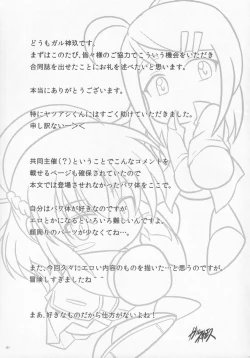 どうもガル神玖です。
まずはこのたび、皆々様のご協力でこういう機会をいただき
合同誌を出せたことにお礼を述べたいと思います。
本当にありがとうございます。
特にヤツアシくんにはすごく助けていただきました。
申し訳ないーンペく
共同主催(?)ということでこんなコメントを
載せるページも確保されていたので
本文では登場させれなかったパワ体をここで。
自分はパワ体が好きなのですが
エロとかになるといろいろ難しいんですよ。
顔周りのパーツが少なくてね…。
また、今回久々にエロい内容のものを描いた…と思うのですが、
冒険しすぎましたね～
まあ、好きなものだから仕方がないよね!